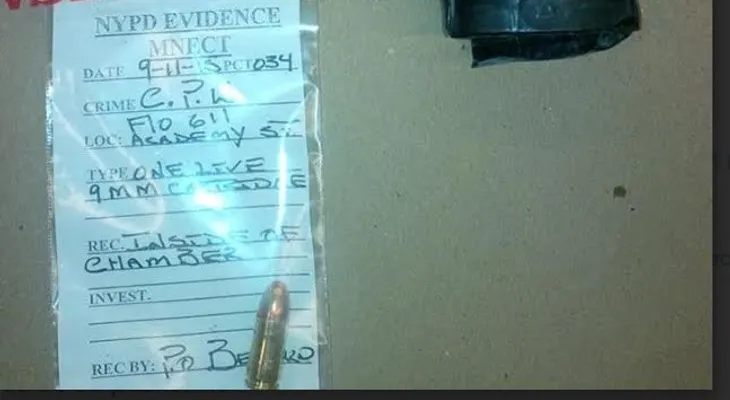 NYPD EVIDENCE
MNECT
DATE 9-11-15 PCT 034
CRIME C.P.W
F/O 611
LOC: ACADEMY ST
TYPE ONE LIVE
9MM CARTRIDGE
REC. INSIDE OF
CHAMBER
INVEST.
REC BY: P.O